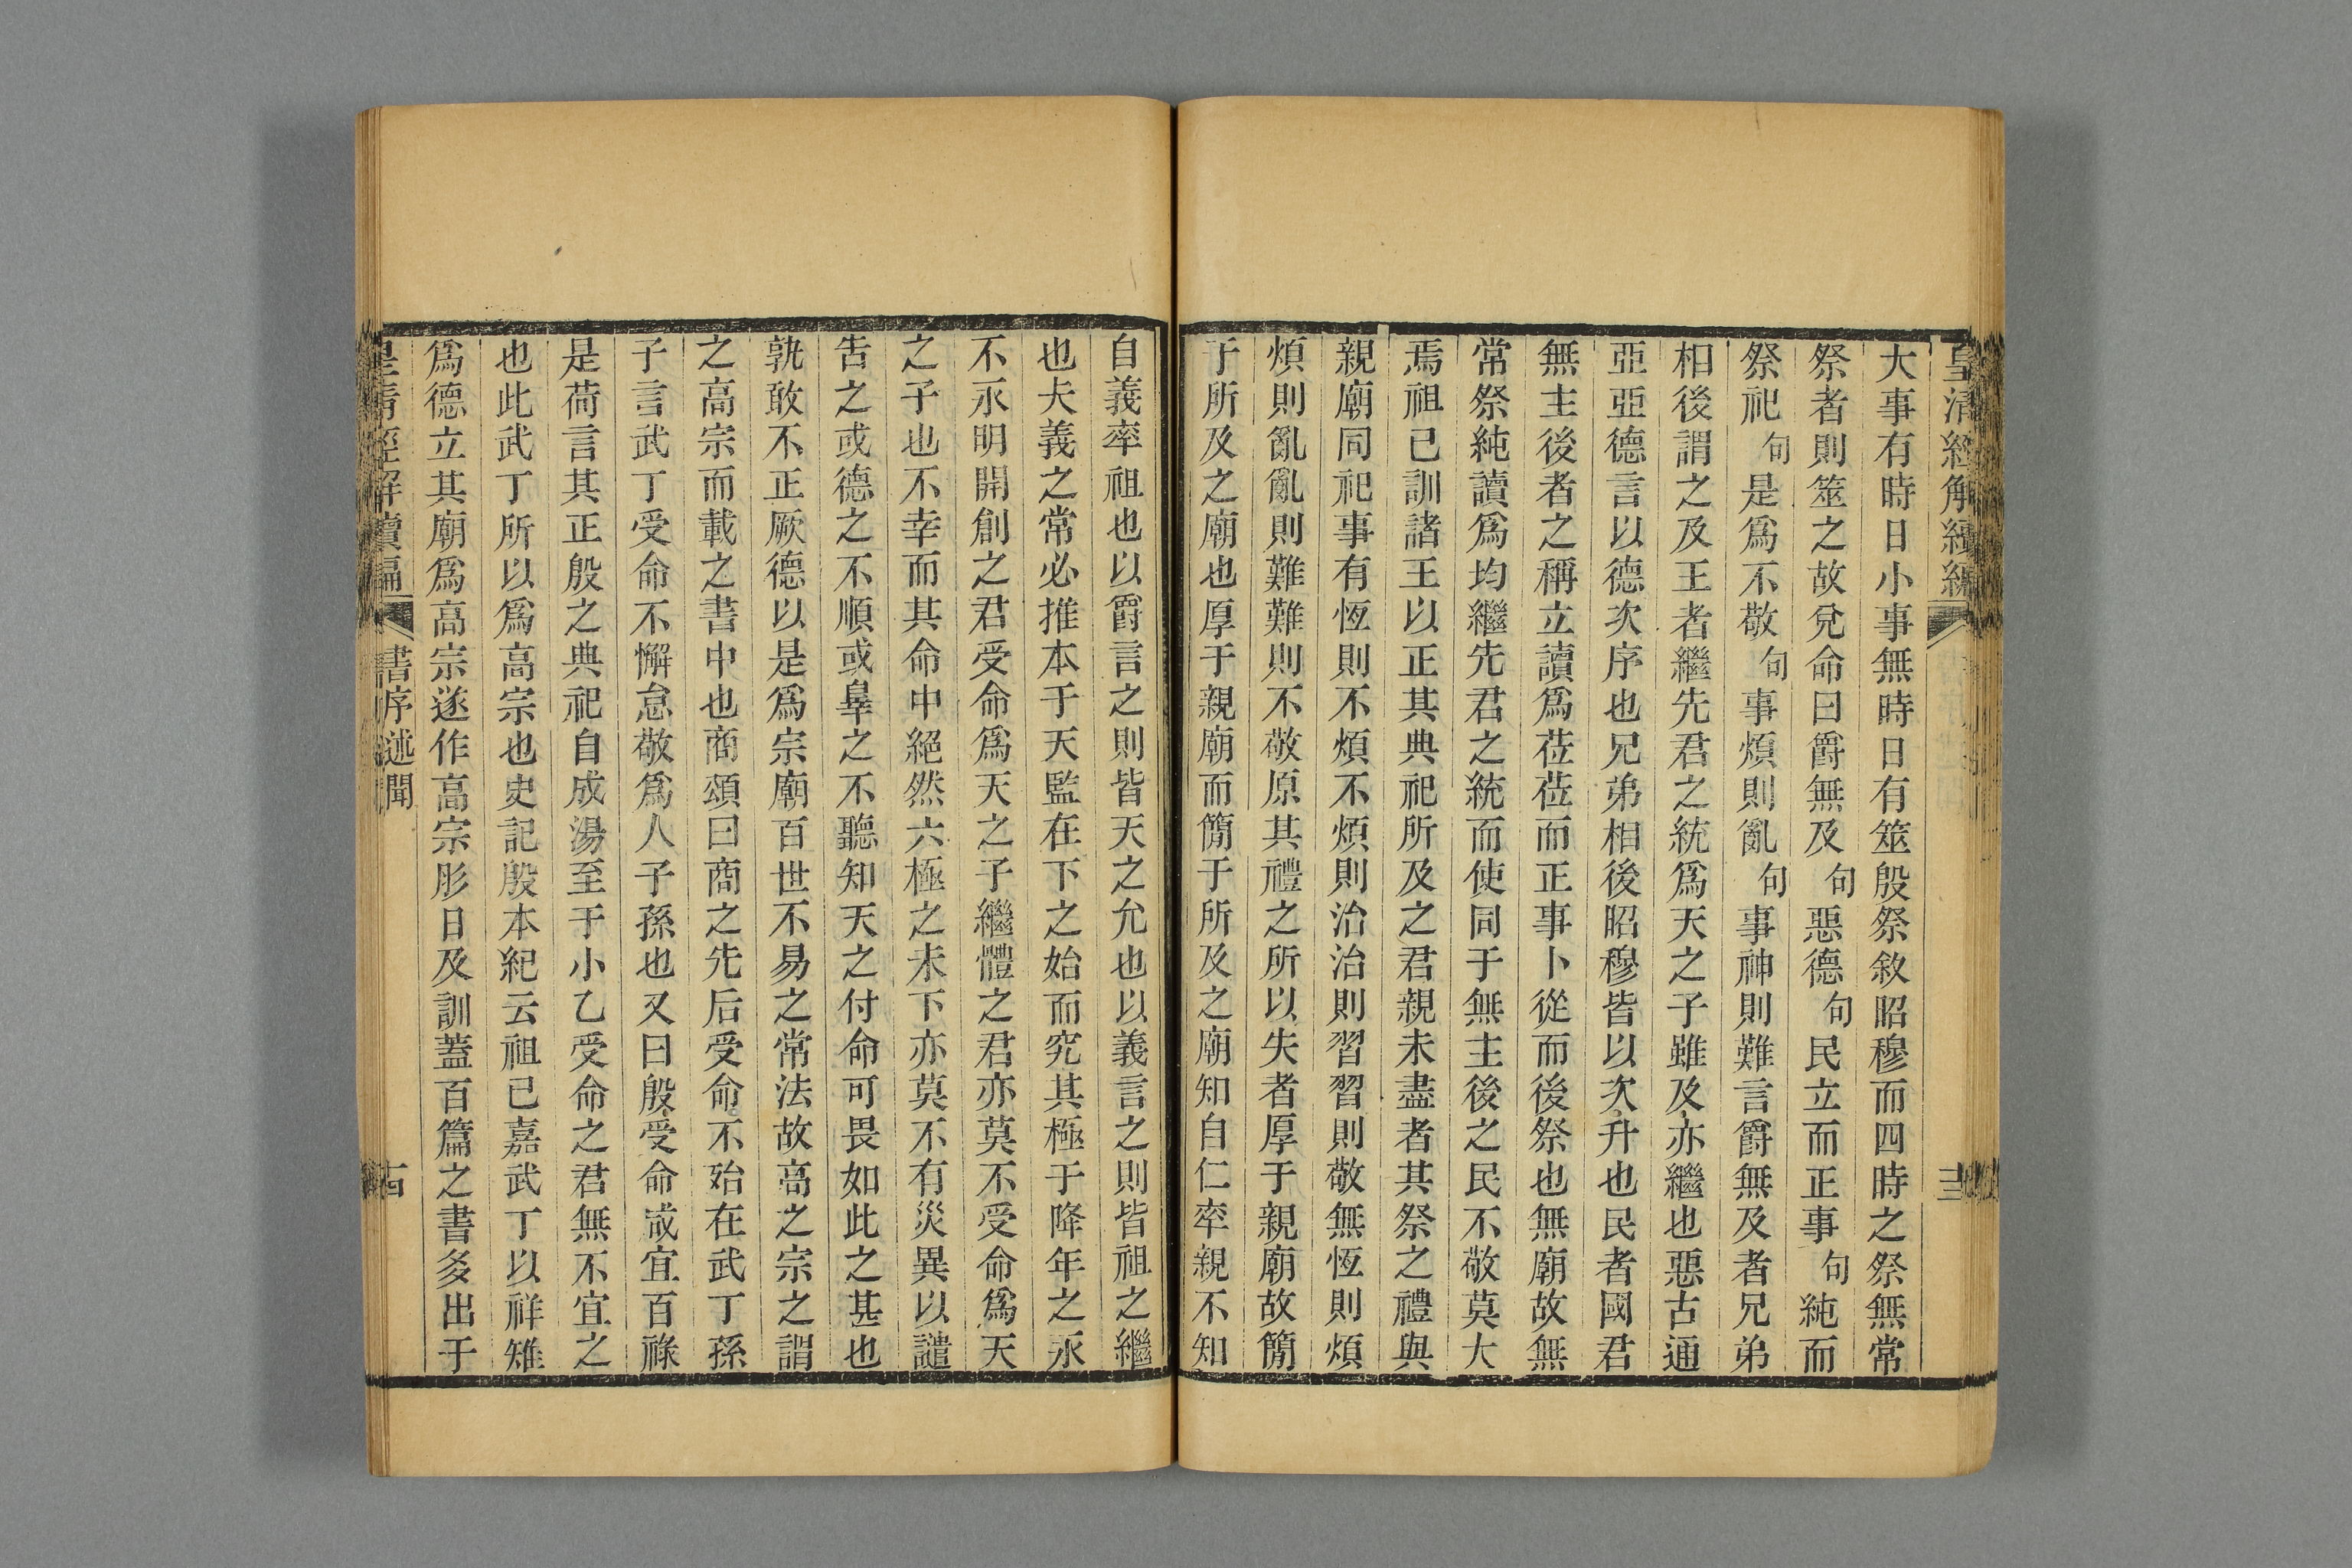 皇清經解續編
十三
大事有時日小事無時日有筮殷祭敘昭穆而四時之祭無常
祭者則筮之故兌命曰爵無及句惡德句民立而正事句純而
祭祀句是爲不敬句事煩則亂句事神則難言爵無及者兄弟
相後謂之及王者繼先君之統爲天之子雖及亦繼也惡古通
亞亞德言以德次序也兄弟相後昭穆皆以次升也民者國君
無主後者之稱立讀爲莅莅而正事卜從而後祭也無廟故無
常祭純讀爲均繼先君之統而使同于無主後之民不敬莫大
焉祖已訓諸王以正其典祀所及之君親未盡者其祭之禮與
親廟同祀事有恆則不煩不煩則治治則習習則敬無恆則煩
煩則亂亂則難難則不敬原其禮之所以失者厚于親廟故簡
于所及之廟也厚于親廟而簡于所及之廟知自仁率親不知
自義率祖也以爵言之則皆天之允也以義言之則皆祖之繼
也夫義之常必推本于天監在下之始而究其極于降年之永
不永明開創之君受命爲天之子繼體之君亦莫不受命爲天
之子也不幸而其命中絕然六極之未下亦莫不有災異以譴
告之或德之不順或辠之不聽知天之付命可畏如此之甚也
孰敢不正厥德以是爲宗廟百世不易之常法故高之宗之謂
之高宗而載之書中也商頌曰商之先后受命不殆在武丁孫
子言武丁受命不懈怠敬爲人子孫也又曰殷受命咸宜百祿
是荷言其正殷之典祀自成湯至于小乙受命之君無不宜之
也此武丁所以爲高宗也史記殷本紀云祖已嘉武丁以祥雉
爲德立其廟爲高宗遂作高宗肜日及訓蓋百篇之書多出于
皇清經解續編
書序述聞
十四